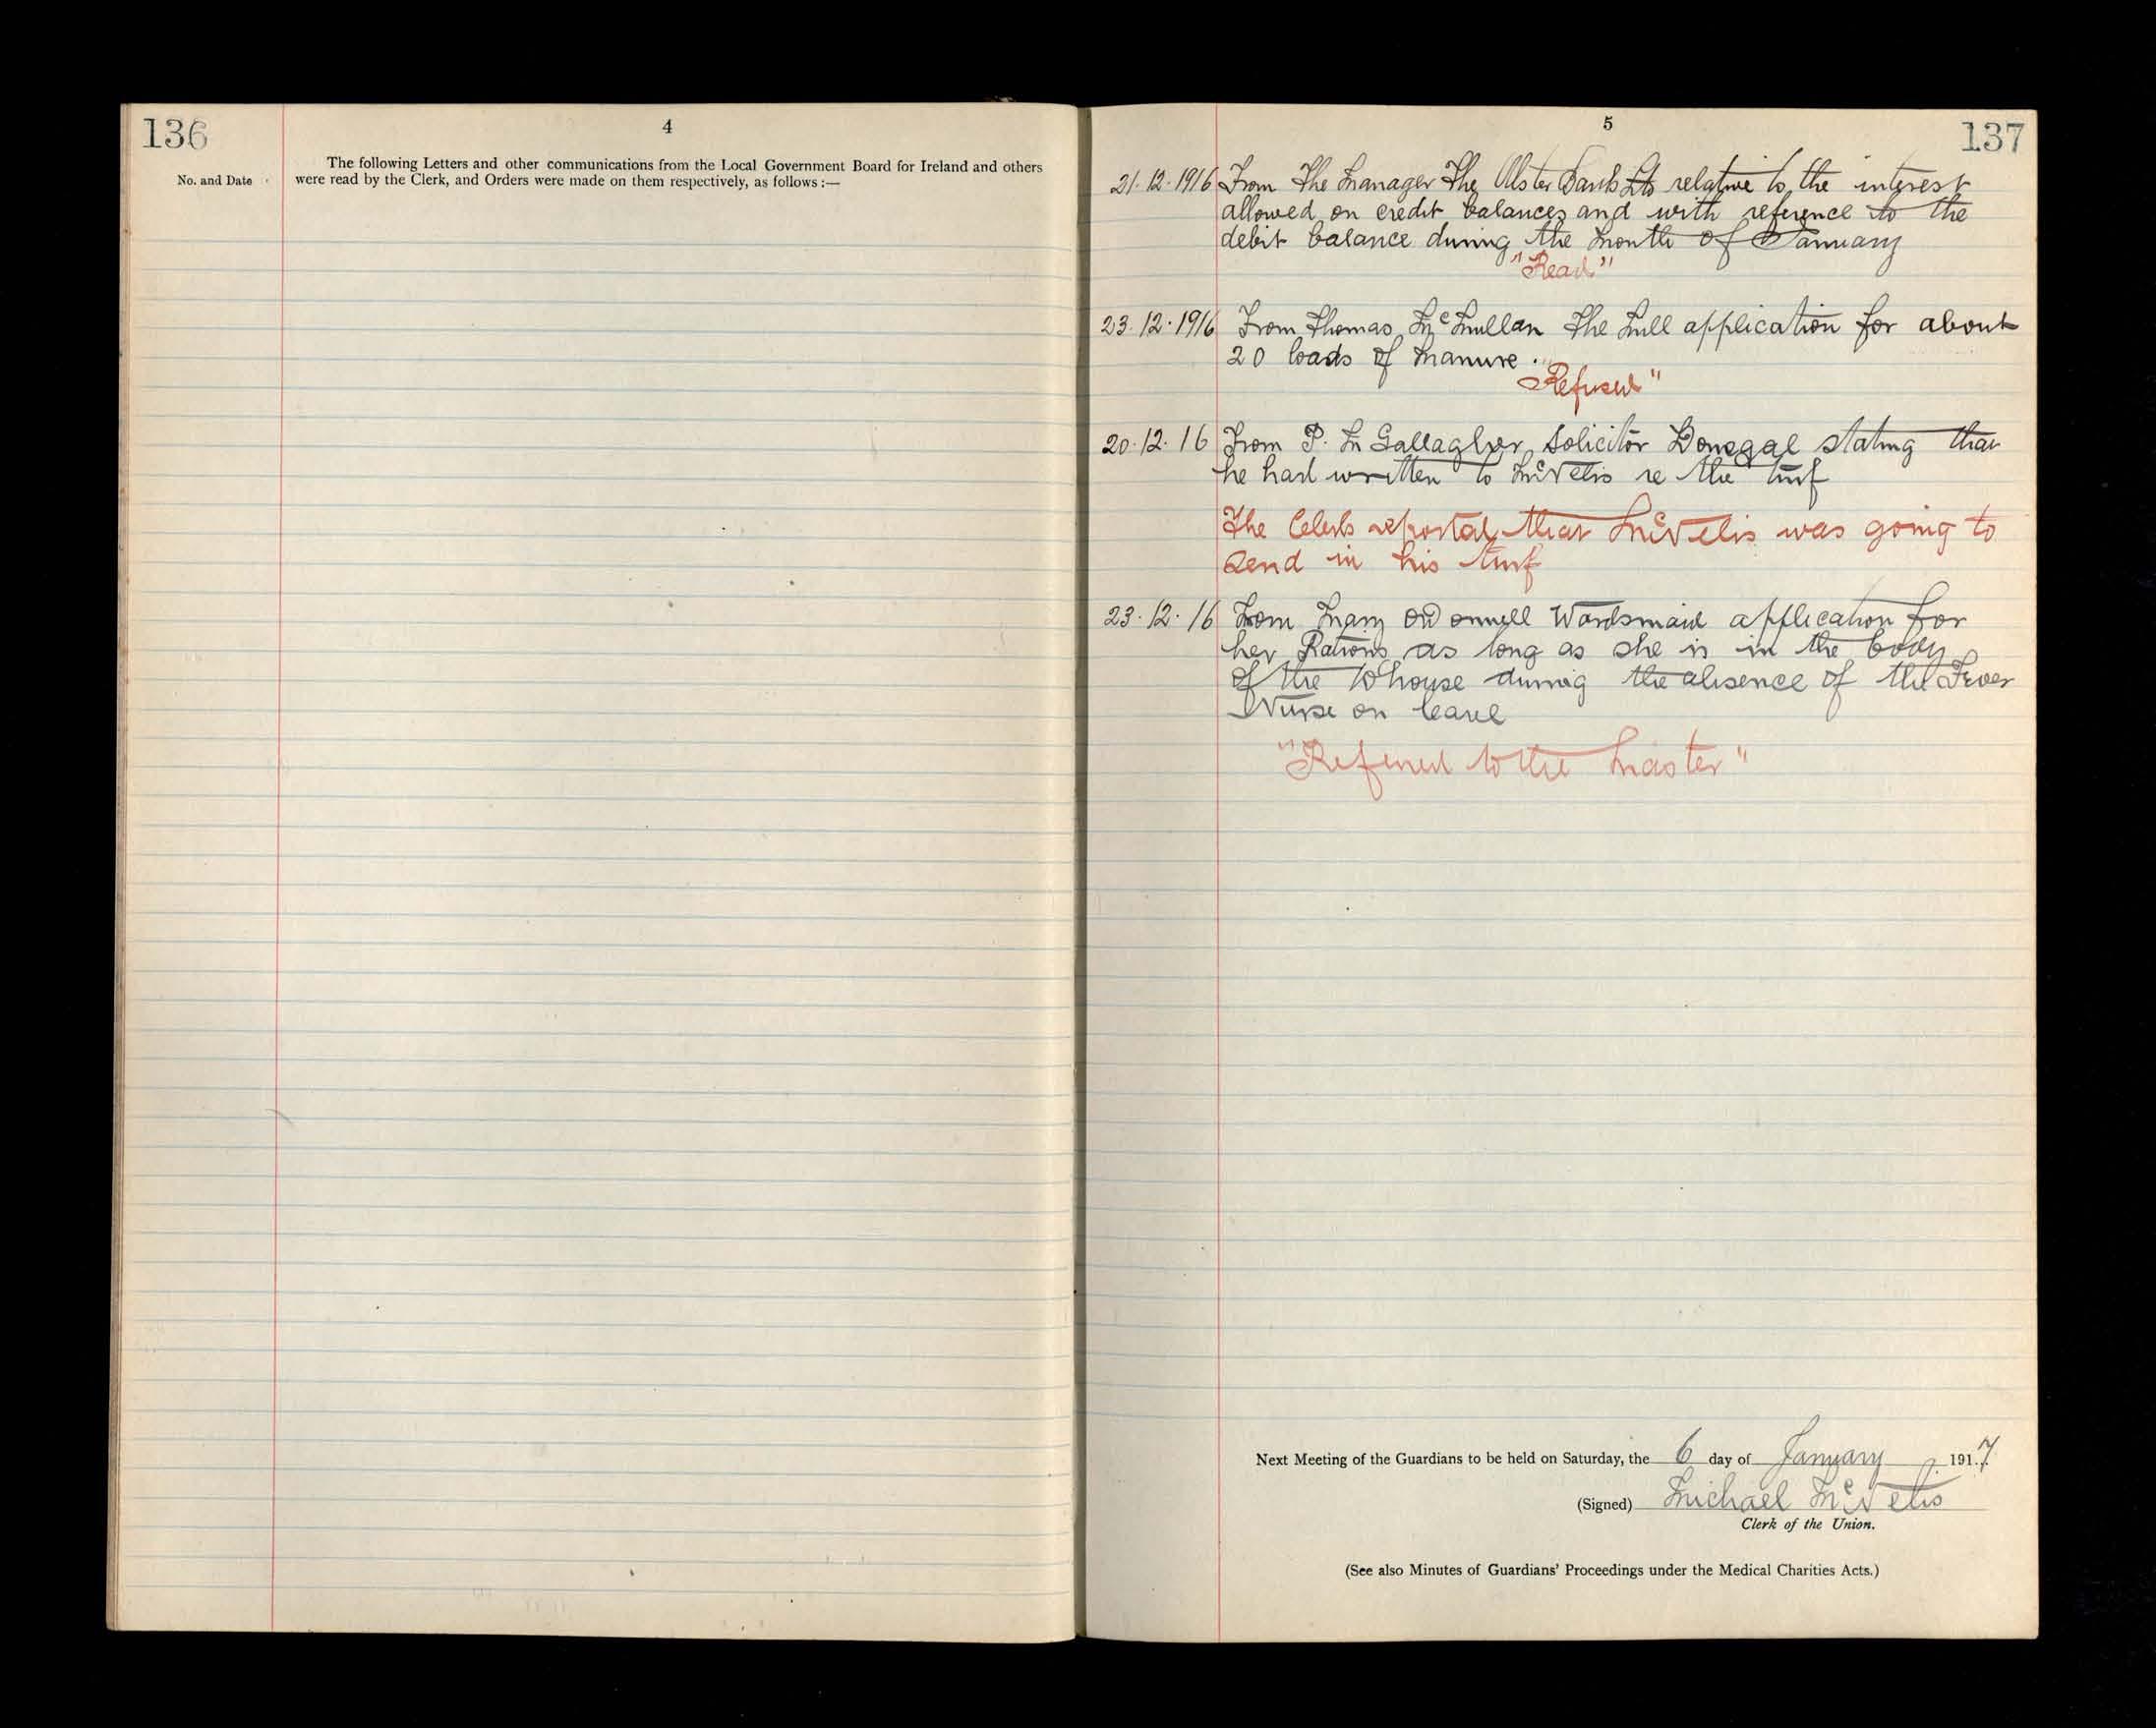 136
4
No. and Date
The following Letters and other communications from the Local Government Board for Ireland and others
were read by the Clerk, and Orders were made on them respectively, as follows :—
5
137
21.12.1916 From The Manager The Ulster Bank Ltd relative to the interest
allowed on credit balances and with reference to the
debit balance during the month of January
"Read"
23.12.1916 From Thomas McMullan The Mull application for about
20 loads of manure.
"Refused"
20.12.16 From P. M Gallagher Solicitor Donegal stating that
he had written to McNelis re the turf
The Clerk reported that McNelis was going to
send in his turf
23.12.16 From Mary O'Donnell Wardsmaid application for
her Rations as long as she is in the body
of the Whouse during the absence of the Fever
Nurse on leave
"Referred to the Master"
Next Meeting of the Guardians to be held on Saturday, the 6 day of January 1917.
(Signed) Michael McNelis
Clerk of the Union.
(See also Minutes of Guardians' Proceedings under the Medical Charities Acts.)